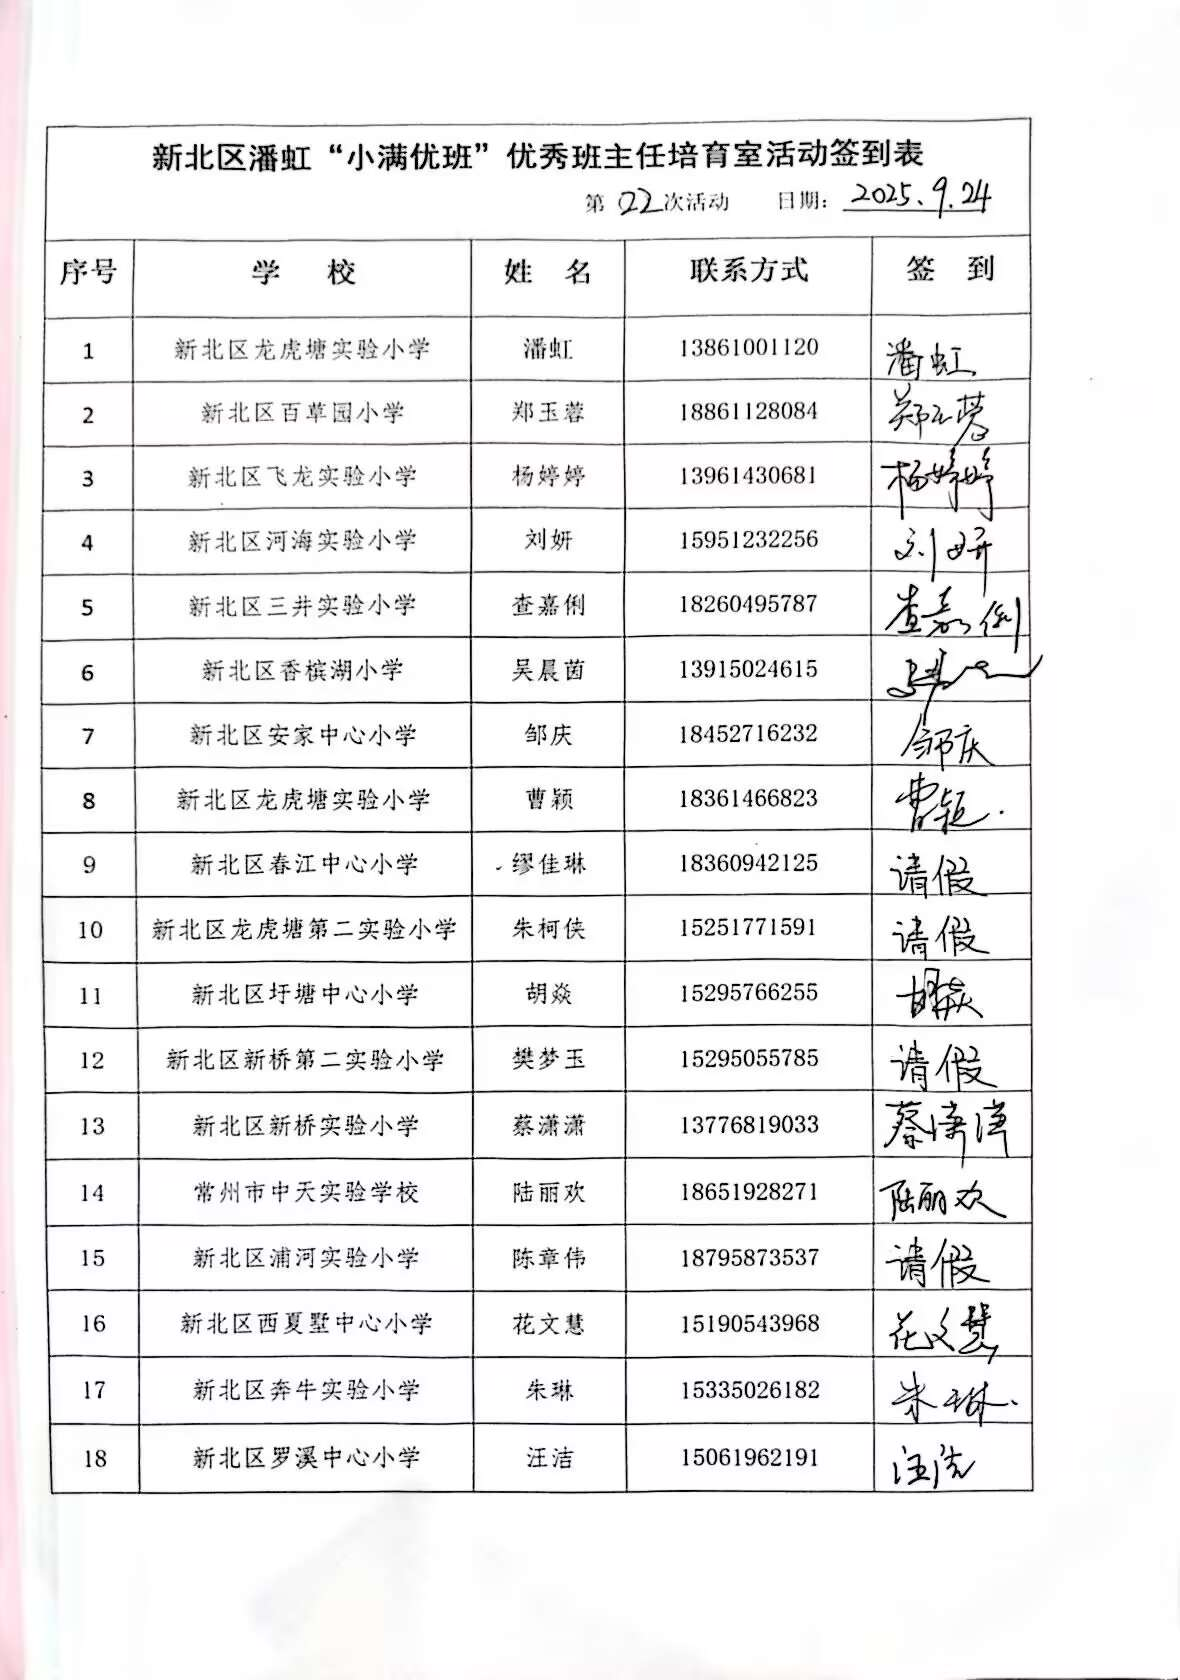 新北区潘虹“小满优班”优秀班主任培育室活动签到表
第022次活动 日期：2025.9.24
序号 学 校 姓 名 联系方式 签 到
1 新北区龙虎塘实验小学 潘虹 13861001120 潘虹
2 新北区百草园小学 郑玉蓉 18861128084 郑玉蓉
3 新北区飞龙实验小学 杨婷婷 13961430681 杨婷婷
4 新北区河海实验小学 刘妍 15951232256 刘妍
5 新北区三井实验小学 查嘉俐 18260495787 查嘉俐
6 新北区香槟湖小学 吴晨茵 13915024615
7 新北区安家中心小学 邹庆 18452716232 邹庆
8 新北区龙虎塘实验小学 曹颖 18361466823 曹颖.
9 新北区春江中心小学 缪佳琳 18360942125 请假
10 新北区龙虎塘第二实验小学 朱柯侠 15251771591 请假
11 新北区圩塘中心小学 胡焱 15295766255 胡焱
12 新北区新桥第二实验小学 樊梦玉 15295055785 请假
13 新北区新桥实验小学 蔡潇潇 13776819033 蔡潇潇
14 常州市中天实验学校 陆丽欢 18651928271 陆丽欢
15 新北区浦河实验小学 陈章伟 18795873537 请假
16 新北区西夏墅中心小学 花文慧 15190543968 花文慧
17 新北区奔牛实验小学 朱琳 15335026182 朱琳.
18 新北区罗溪中心小学 汪洁 15061962191 汪洁